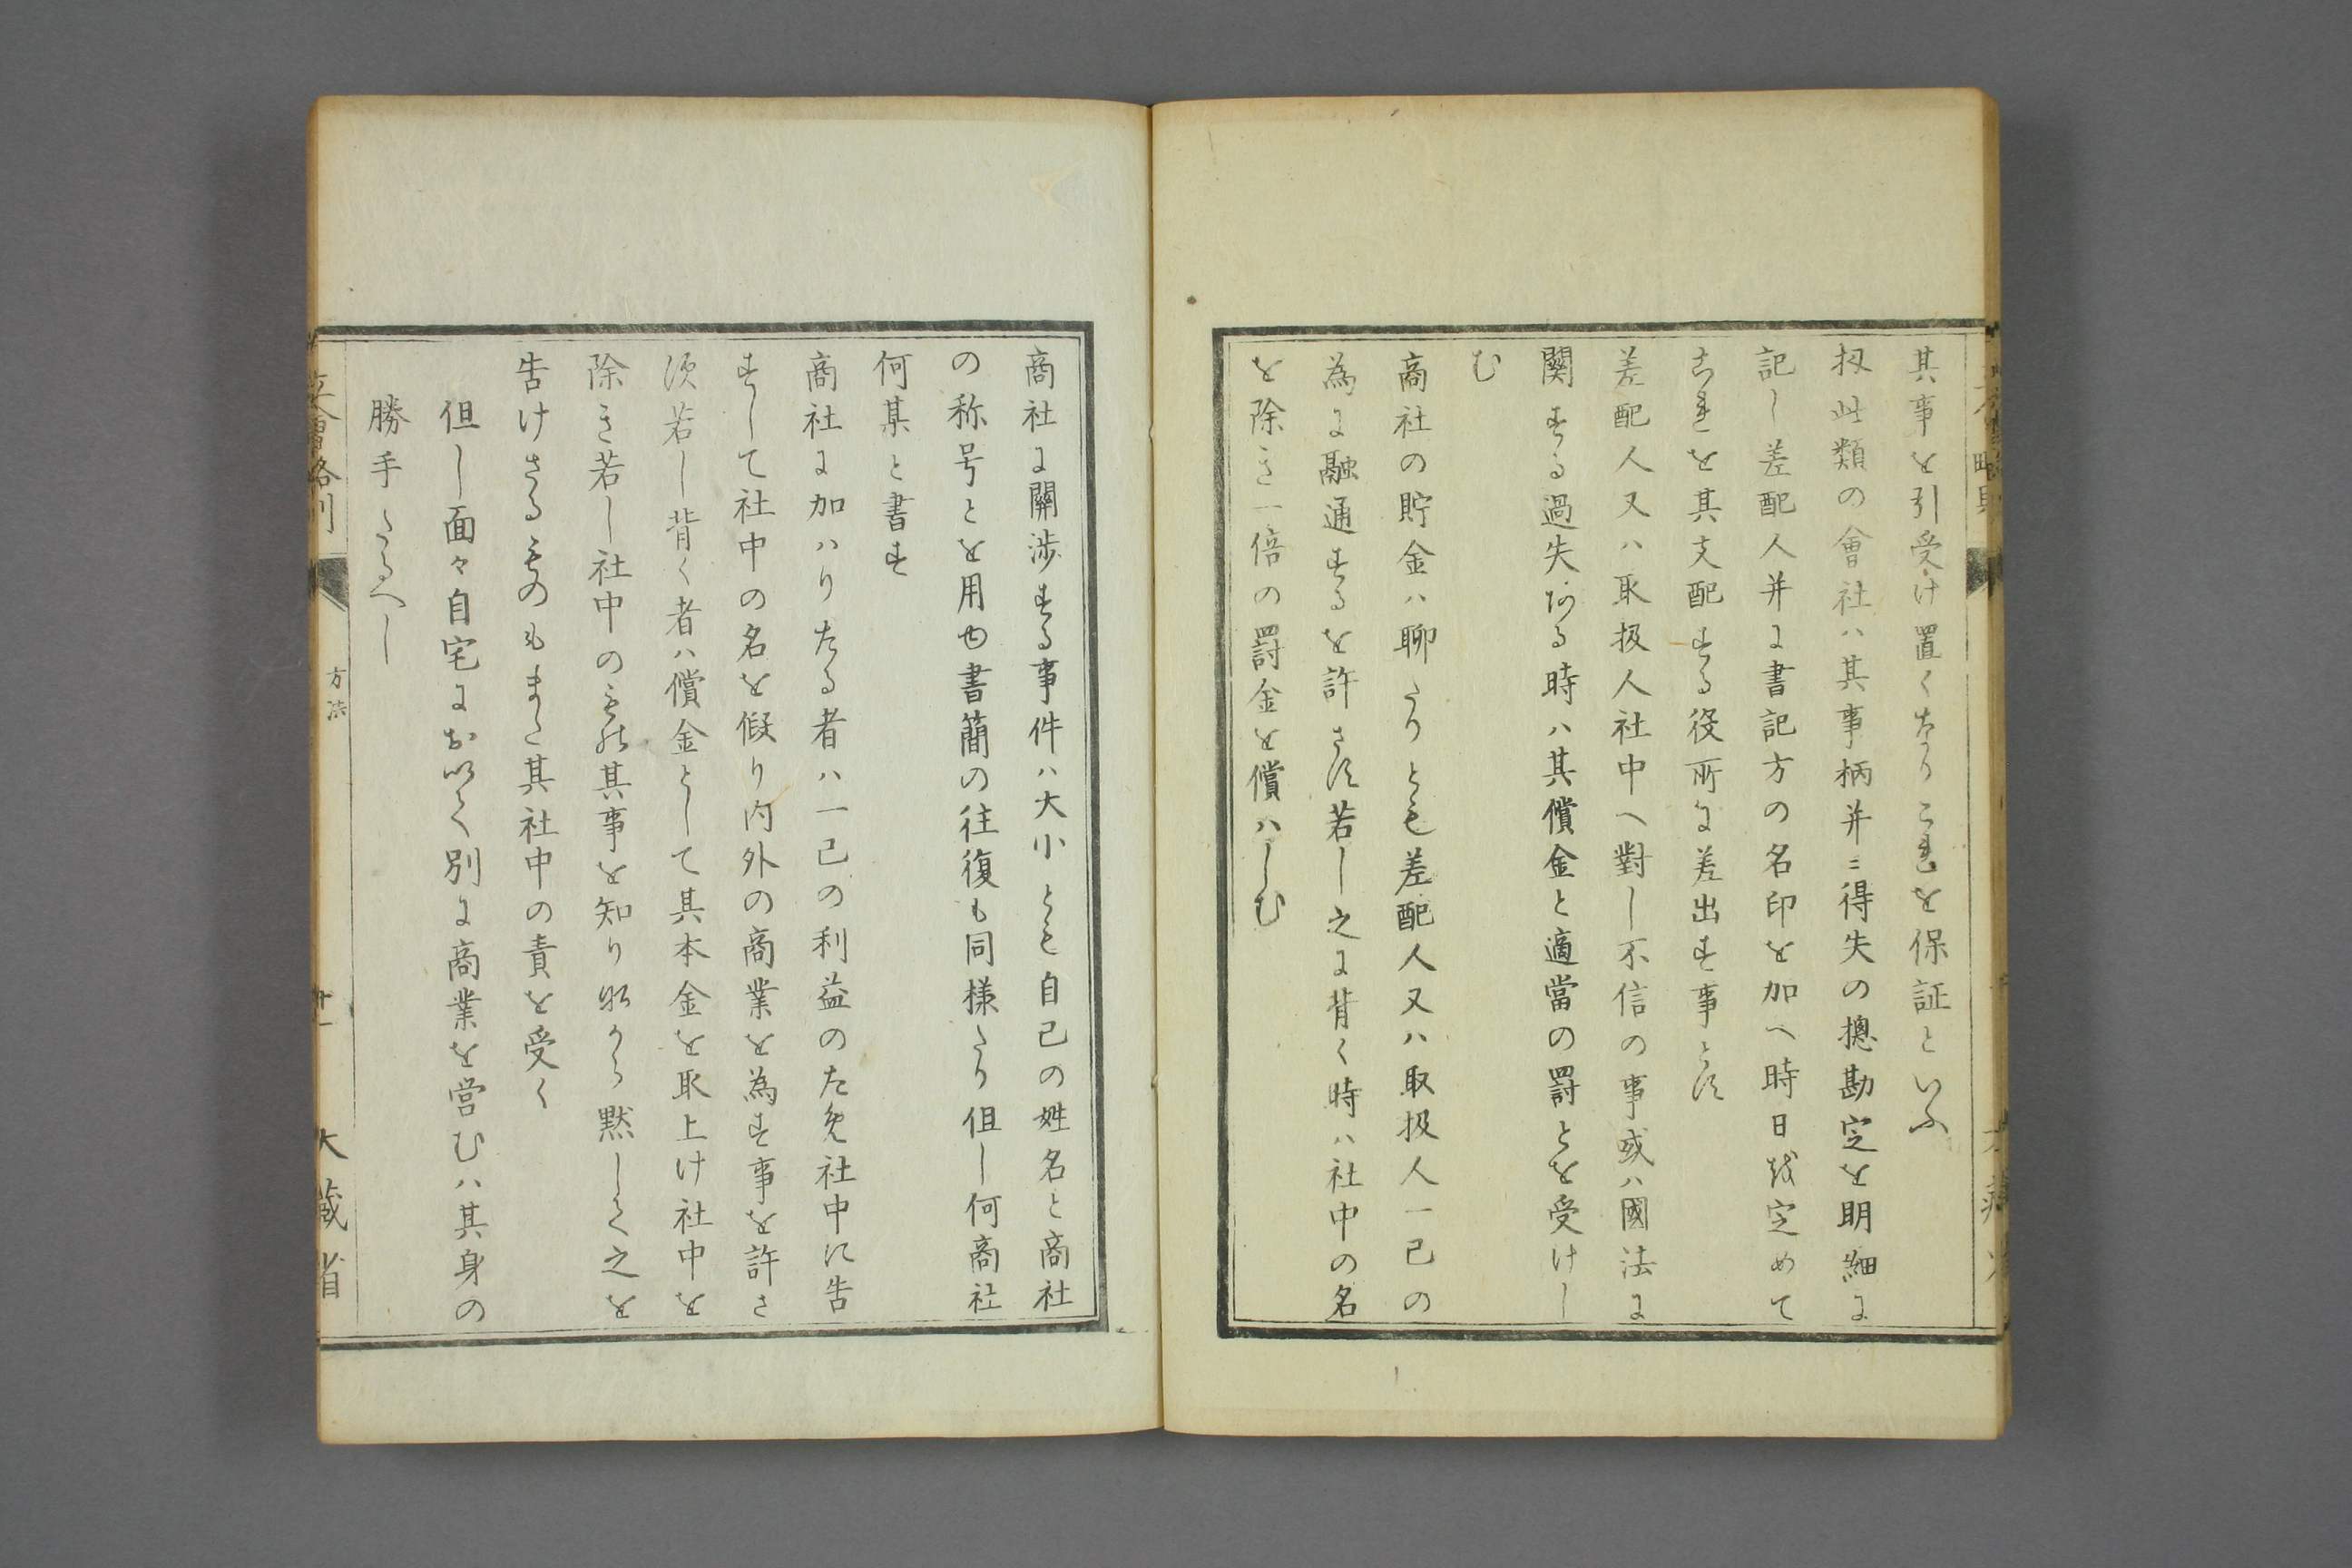 其事を引受け置くなりこれを保証といふ
扨此類の會社ハ其事柄并ニ得失の摠勘定を明細に
記し差配人并に書記方の名印を加へ時日を定めて
これを其支配する役所に差出す事とす
差配人又ハ取扱人社中へ對し不信の事或ハ國法に
關する過失ある時ハ其償金と適當の罸とを受けし
む
商社の貯金ハ聊たりとも差配人又ハ取扱人一已の
為に融通するを許さす若し之に背く時ハ社中の名
を除き一倍の罸金を償ハしむ
商社に關渉する事件ハ大小とも自己の姓名と商社
の称号とを用ゆ書簡の往復も同様たり但し何商社
何某と書す
商社に加ハりたる者ハ一已の利益のため社中に告
すして社中の名を假り内外の商業を為す事を許さ
須若し背く者ハ償金として其本金を取上け社中を
除き若し社中のもの其事を知りなから黙して之を
告けさるものもまた其社中の責を受く
但し面々自宅において別に商業を営むハ其身の
勝手たるへし
立會略則
方法
廿一
大藏省